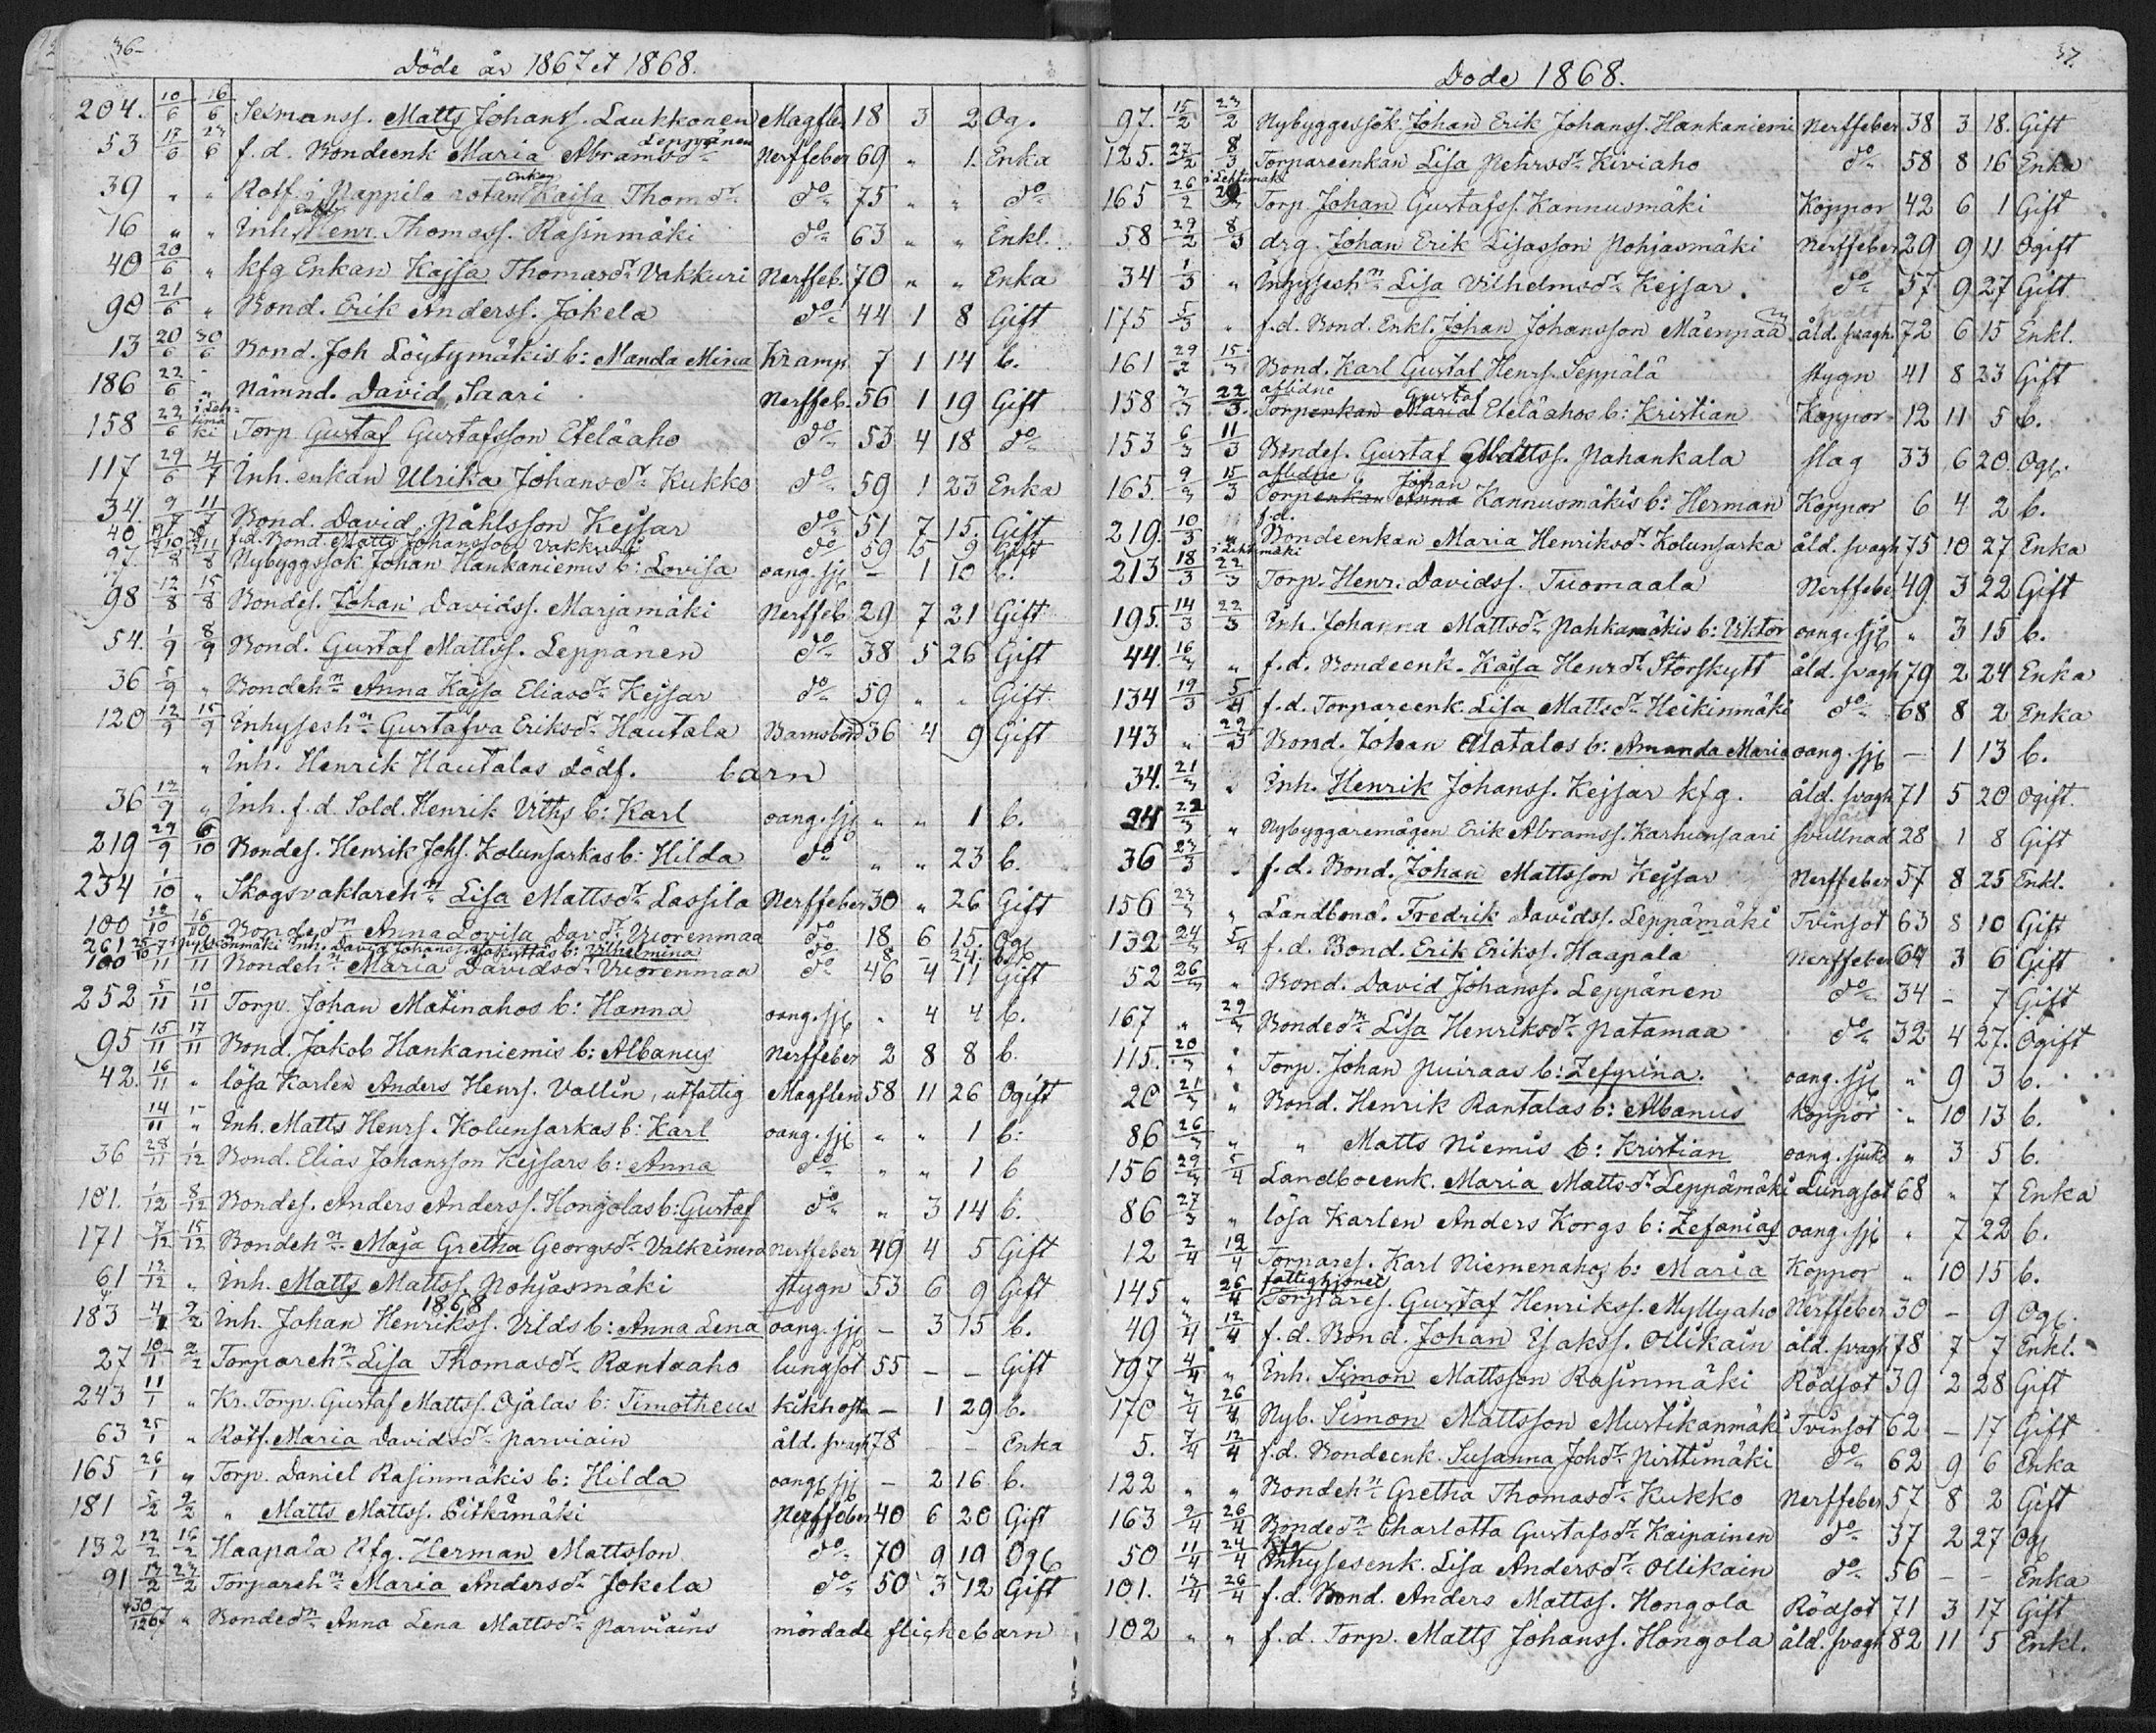 36
Döde år 1867 et 1868.
204. 10/6 16/6 Sexmanss. Matts Johanss. Laukkonen Magfleb. 18 3 2 Og.
53 17/6 23/6 f.d. Bondeenk Maria Abramsdr Leppänen Nerffeber 69 " 1. Enka
39 " " Rotf. i Pappila rotan Enkan Kajsa Thomdr do 75 " " do
76 " " Inh. Enkl. Henr. Thomass. Rasinmäki do 63 " " Enkl.
40 20/6 " kfg Enkan Kajsa Thomasdr Vakkuri Nerffeb. 70 " " Enka
90 21/6 " Bond. Erik Anderss. Jokela do 44 1 8 Gift
13 20/6 30/6 Bond. Joh Löytymäkis b: Manda Mina Kramp 7 1 14 b.
186 22/6 " Nämnd. David Saari Nerffeb. 56 1 19 Gift
158 22/6 i Lehtimäki Torp Gustaf Gustafsson Eteläaho do 53 4 18 do
117 29/6 4/7 Inh. enkan Ulrika Johansdr Kukko do 59 1 23 Enka
34. 9/7 11/7 Bond. David Påhlsson Kejsar do 51 7 15. Gift
40 f.d. Bond. Matts Johansson Vakkuri do 59 5 9 Gift
97. 10/8 11/8 Nybyggssok Johan Hankaniemis b: Lovisa oang. sj – 1 10 b.
98 12/8 15/8 Bondes. Johan Davidss. Marjamäki Nerffeb 29 7 21 Gift
54. 1/9 8/9 Bond. Gustaf Mattss. Leppänen do 38 5 26 Gift
36 5/9 " Bondehn Anna Kajsa Eliasdr Kejsar do 59 " " Gift
120 12/9 15/9 Inhyseshn Gustafva Eriksdr Hautala Barnsbörd 36 4 9 Gift
" Inh. Henrik Hautalas dödf. barn
36 12/9 " Inh. f.d. Sold. Henrik Viths b: Karl oang. sj " " 1 b.
219 29/9 6/10 Bondes. Henrik Johs. Kolunsarkas b: Hilda do " " 23 b.
234 1/10 " Skogsvaktarehn Lisa Mattsdr Lassila Nerffeber 30 " 26 Gift
100 12/10 16/10 Bondedn Anna Lovisa Davdr Vuorenmaa do 18 6 15. Og
261 25/10 Inh. David Johanss. b: Vilhelmina do 8 – 24. b.
100 7/11 10/11 Bondehn Maria Davidsdr Vuorenmaa do 46 4 11 Gift
252 5/11 10/11 Torp. Johan Matinahos b: Hanna oang. sj " 4 4 b.
95 15/11 17/11 Bond. Jakob Hankaniemis b: Albanus Nerffeber 2 8 8 b.
42. 16/11 " lösa Karlen Anders Henrs. Vallin, utfattig Magflen 58 11 26 Ogift
14/11 " Inh. Matts Henrs. Kolunsarkas b: Karl oang. sj " " 1 b:
36 28/11 1/12 Bond. Elias Johansson Kejsars b: Anna do " " 1 b
101. 1/12 8/12 Bondes. Anders Anderss. Hongolas b: Gustaf do " 3 14 b.
171 7/12 15/12 Bondehn Maja Gretha Georgsdr Valkeinen Nerffeber 49 4 5 Gift
61 12/12 " Inh. Matts Mattss. Pohjasmäki stygn 53 6 9 Gift
1868
183 4/1 2/2 Inh. Johan Henrikss. Vilds b: Anna Lena oang. sj – 3 15 b.
27 10/1 2/2 Torparehn Lisa Thomasdr Rantaaho lungsot 55 – – Gift
243 11/1 " Kr. Torp. Gustaf Mattss. Ojalas b: Timotheus kikhosta – 1 29 b.
63 25/1 " Rotf. Maria Davidsdr Parviain åld. svagh 78 – – Enka
165 26/1 " Torp. Daniel Rasinmäkis b: Hilda oang. sj – 2 16 b.
181 5/2 9/2 " Matts Mattss. Pitkämäki Nerffeber 40 6 20 Gift
132 12/2 16/2 Haapala kfg. Herman Mattsson do 70 9 19 Og
91 17/2 23/2 Torparehn Maria Andersdr Jokela do 50 3 12 Gift
30/12 67 " Bondedn Anna Lena Mattsdr Parviains mördade flickebarn
37.
Döde 1868.
97. 15/2 23/2 Nybyggessok. Johan Erik Johanss. Hankaniemi Nerffeber 38 3 18. Gift
125. 27/2 8/3 Torpareenkan Lisa Pehrsdr Kiviaho do 58 8 16 Enka
165 26/2 i Lehtimäki Torp Johan Gustafss. Kannusmäki Koppor 42 6 1 Gift
58 29/2 8/3 drg. Johan Erik Lisasson Pohjasmäki Nerffeber 29 9 11 Ogift
34 1/3 " Inhyseshn Lisa Vilhelmsdr Kejsar. do 57 9 27 Gift
175 5/3 " f.d. Bond. Enkl. Johan Johansson Mäenpää åld. svagh. 72 6 15 Enkl.
161 29/2 15/3 Bond. Karl Gustaf Henrs. Seppälä stygn 41 8 23 Gift
158 3/3 22/3 aflidne Torpenkan Maria Gustaf Eteläahos b: Kristian Koppor 12 11 5 b.
153 6/3 11/3 Bondes. Gustaf Mattss. Pahankala slag 33 6 20 Og.
165. 9/3 15/3 aflidne Torpenkan Anna Johan Kannusmäkis b: Herman Koppor 6 4 2 b.
219. 10/3 " f.d. Bondeenkan Maria Henriksdr Kolunsarka åld. svagh 75 10 27 Enka
213 18/3 22/3 i Lehtimäki Torp. Henr. Davidss. Tuomaala Nerffebe 49 3 22 Gift
195. 14/3 22/3 Inh. Johanna Mattsdr Pahkamäkis b: Viktor oang. sj " 3 15 b.
44. 16/3 " f.d. Bondeenk. Kajsa Henrdr Storskytt åld. svagh 79 2 24 Enka
134 19/3 5/4 f.d. Torpareenk. Lisa Mattsdr Heikinmäki do 68 8 2 Enka
143 " 22/3 Bond. Johan Alatalos b: Amanda Maria oang. sj – 1 13 b.
34. 21/3 " Inh. Henrik Johanss. Kejsar kfg. åld. svagh 71 5 20 Ogift.
24 22/3 " Nybyggaremågen Erik Abramss. Karhunsaari svullnad 28 1 8 Gift
36 23/3 " f.d. Bond. Johan Mattsson Kejsar Nerffeber 57 8 25 Enkl.
156 23/3 " Landbond. Fredrik Davidss. Leppämäki Tvinsot 63 8 10 Gift
132 24/3 5/4 f.d. Bond. Erik Erikss. Haapala Nerffeber 64 3 6 Gift
52 26/3 " Bond. David Johanss. Leppänen do 34 – 7 Gift
167 " 29/3 Bondedn Lisa Henriksdr Patamaa do 32 4 27. Ogift
115. 20/3 " Torp. Johan Puiraas b: Zefyrina. oang. sj " 9 3 b.
20 21/3 " Bond. Henrik Rantalas b: Albanus Koppor " 10 13 b.
86 26/3 " " Matts Niemis b: Kristian oang. sjukd " 3 5 b.
156 29/3 5/4 Landboeenk. Maria Mattsdr Leppämäki Lungsot 68 " 7 Enka
86 27/3 " lösa Karlen Anders Korgs b: Zefanias oang. sj " 7 22 b.
12 2/4 12/4 Torpares. Karl Niemenahos b: Maria Koppor " 10 15 b.
145 " 26/4 fattighjonet Torpares. Gustaf Henrikss. Myllyaho Nerffeber 30 – 9 Og.
49 3/4 12/4 f.d. Bond. Johan Isakss. Ollikain åld. svagh 78 7 7 Enkl.
197 4/4 " Inh. Simon Mattsson Rasinmäki Rödsot 39 2 28 Gift
170 3/4 26/4 Nyb. Simon Mattsson Mustikanmäki Tvinsot 62 – 17 Gift
5. 7/4 12/4 f.d. Bondeenk. Susanna Johdr Pirttimäki do 62 9 6 Enka
122 " " Bondehn Gretha Thomasdr Kukko Nerffeber 57 8 2 Gift
163 9/4 26/4 Bondedn Charlotta Gustafsdr Kaipainen do 37 2 27 Og
50 11/4 24/4 kfg. Inhysesenk. Lisa Andersdr Ollikain do 56 – – Enka
101. 13/4 26/4 f.d. Bond. Anders Mattss. Hongola Rödsot 71 3 17 Gift
102 " " f.d. Torp. Matts Johanss. Hongola åld. svagh 82 11 5 Enkl.